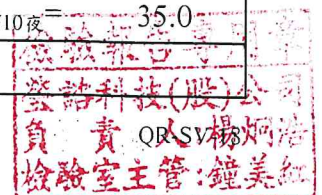 /10夜= 35.0
檢驗報告專用章
瑩諮科技(股)公司
負責人:楊炯浩
QR-SV-18
檢驗室主管:鐘美紅